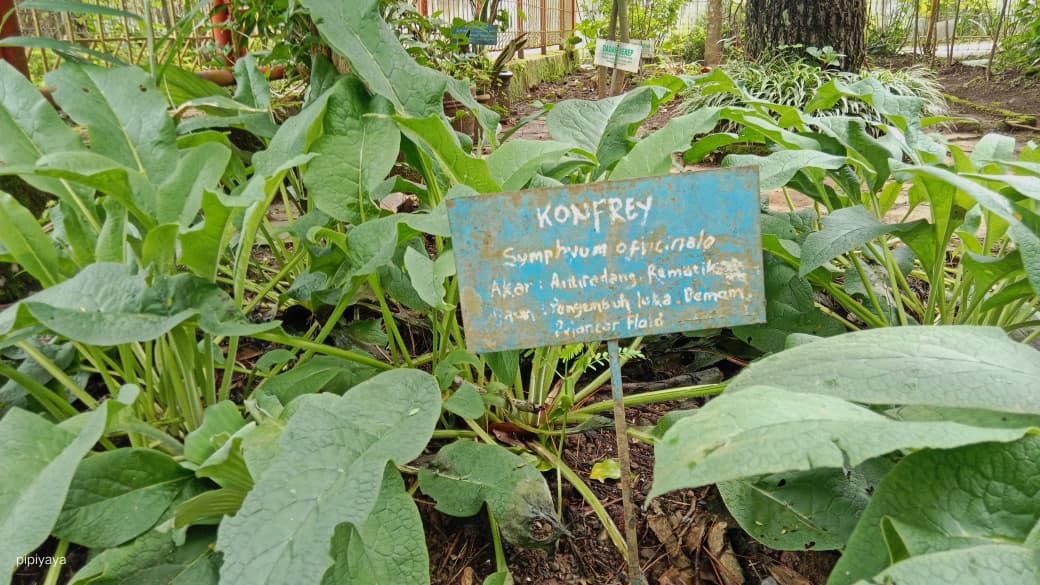 DADAP SEREP
KONFREY
Symphyum officinalo
Akar : Antiradang. Rematik
Daun : Pengembuh luka. Demam.
Plancar Haid
pipiyaya